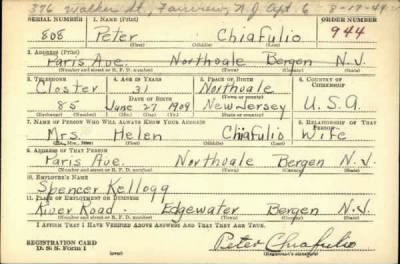 376 Walker St, Fairview, N J Apt. 6 8-17-44
SERIAL NUMBER 1. NAME (Print) ORDER NUMBER
808 Peter Chiafulio 944
(First) (Middle) (Last)
2. ADDRESS (Print)
Paris Ave. Northvale Bergen N.J.
(Number and street or R. F. D. number) (Town) (County) (State)
3. TELEPHONE 4. AGE IN YEARS 5. PLACE OF BIRTH 6. COUNTRY OF CITIZENSHIP
Closter 31 Northvale
DATE OF BIRTH
85 June 27 1909 New Jersey U.S.A.
(Exchange) (Number) (Mo.) (Day) (Yr.) (State or country)
7. NAME OF PERSON WHO WILL ALWAYS KNOW YOUR ADDRESS 8. RELATIONSHIP OF THAT PERSON
Mrs. Helen Chiafulio Wife
(Mr., Mrs., Miss) (First) (Middle) (Last)
9. ADDRESS OF THAT PERSON
Paris Ave. Northvale Bergen N.J.
(Number and street or R. F. D. number) (Town) (County) (State)
10. EMPLOYER'S NAME
Spencer Kellogg
11. PLACE OF EMPLOYMENT OR BUSINESS
River Road - Edgewater Bergen N.J.
(Number and street or R. F. D. number) (Town) (County) (State)
I AFFIRM THAT I HAVE VERIFIED ABOVE ANSWERS AND THAT THEY ARE TRUE.
REGISTRATION CARD
D. S. S. Form 1
Peter Chiafulio
(Registrant's signature)